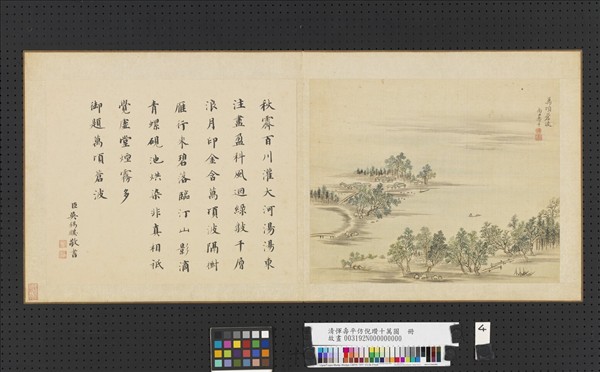 萬頃蒼波
秋霖百川灌大河湯湯東
注盡盈科風迴綠皺千層
浪月印金含萬頃波隔樹
雁行來碧落臨汀山影滴
青螺硯池烘染非真相祗
覺虛堂煙霧多
御題萬頃蒼波
敬書
清惲壽平仿倪瓚十萬圖 冊
故畫 003192N000000000
4